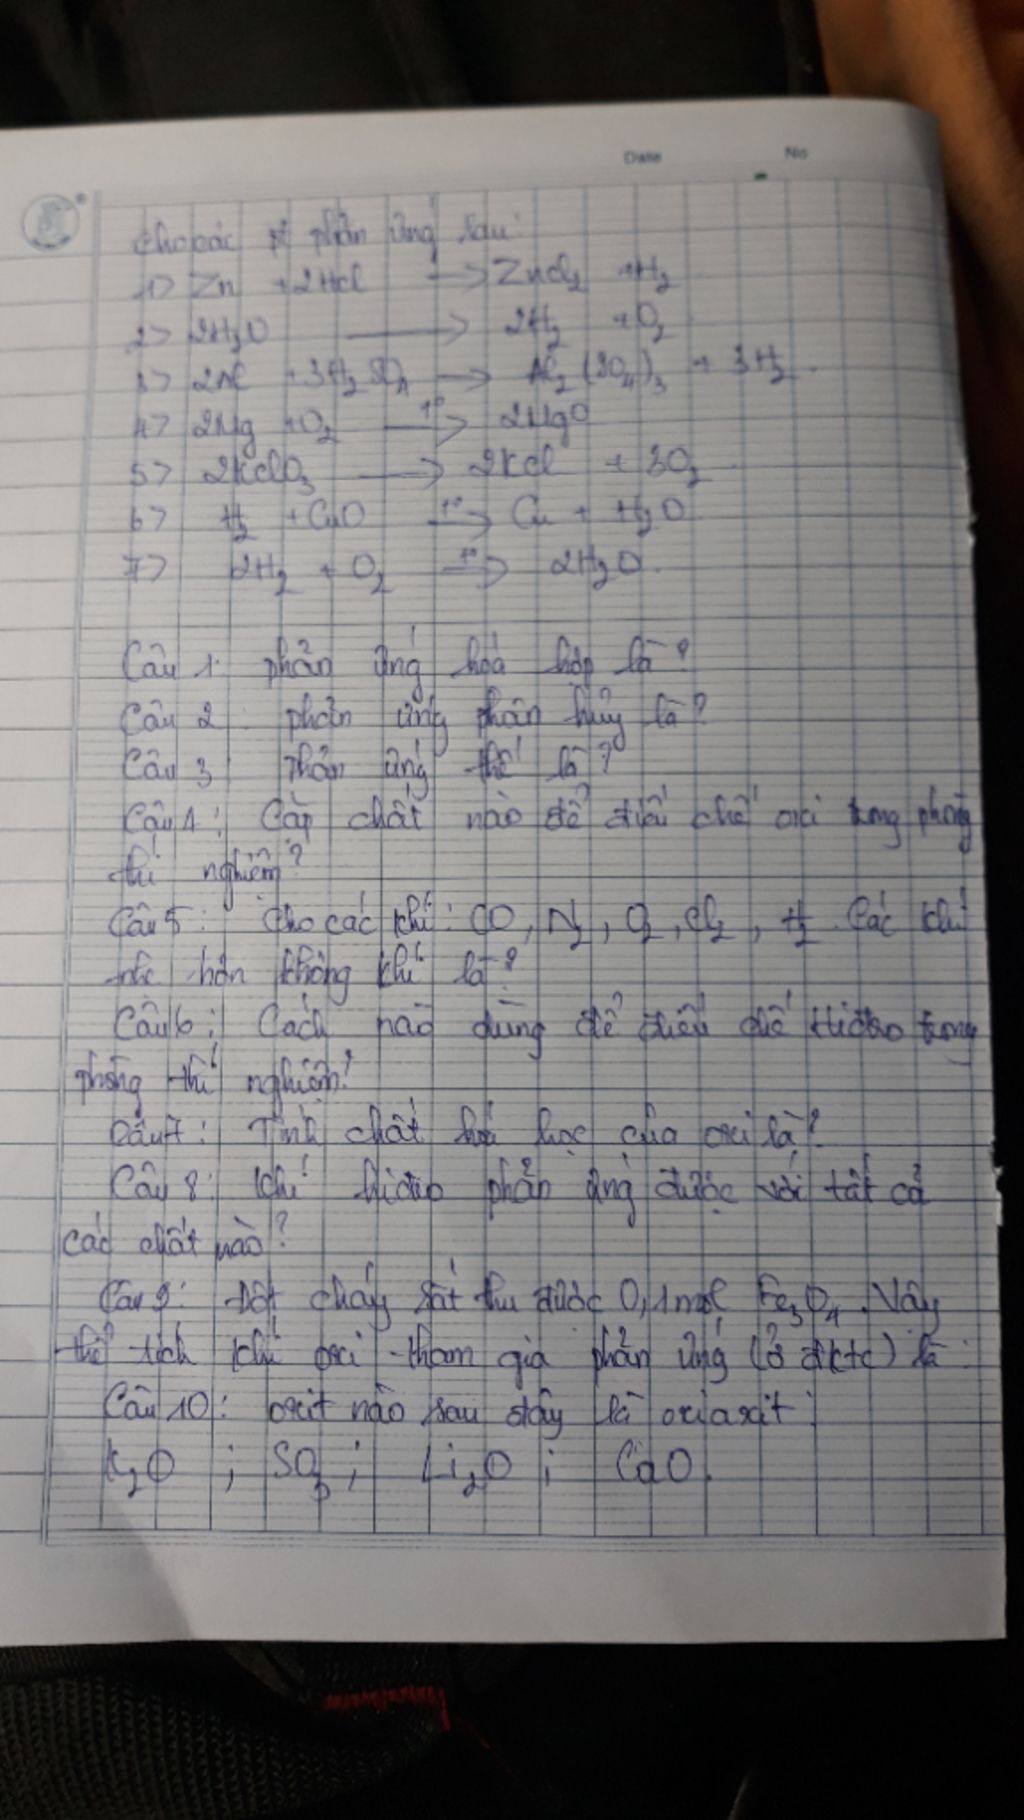 Date No
Cho các pt phản ứng sau:
1> Zn + 2HCl → ZnCl₂ + H₂
2> 2H₂O → 2H₂ + O₂
3> 2Al + 3H₂SO₄ → Al₂(SO₄)₃ + 3H₂.
4> 2Mg + O₂ t° → 2MgO
5> 2KClO₃ → 2KCl + 3O₂
6> H₂ + CuO t° → Cu + H₂O
7> 2H₂ + O₂ t° → 2H₂O.
Câu 1: phản ứng hoá hợp là?
Câu 2: phản ứng phân hủy là?
Câu 3: Phản ứng thế là?
Câu 4: Cặp chất nào để điều chế oxi trong phòng
thí nghiệm?
Câu 5: Cho các khí: CO, N₂, O₂, Cl₂, H₂. Các khí
nhẹ hơn không khí là?
Câu 6: Cách nào dùng để điều chế Hiđro trong
phòng thí nghiệm?
Câu 7: Tính chất hoá học của oxi là?
Câu 8: Khí hiđro phản ứng được với tất cả
các chất nào?
Câu 9: Đốt cháy sắt thu được 0,1 mol Fe₃O₄. Vậy
thể tích khí oxi tham gia phản ứng (ở đktc) là:
Câu 10: oxit nào sau đây là oxi axit:
K₂O ; SO₃ ; Li₂O ; CaO.